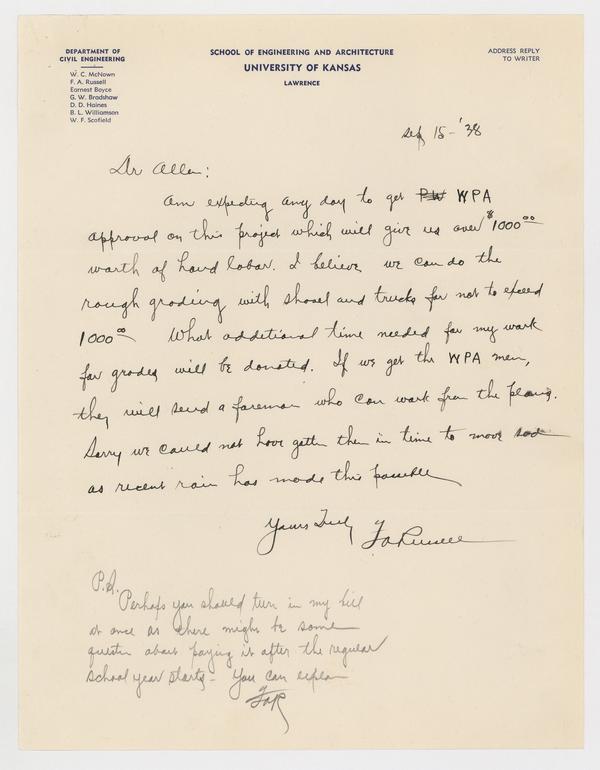 DEPARTMENT OF
CIVIL ENGINEERING
W. C. McNown
F. A. Russell
Earnest Boyce
G. W. Bradshaw
D. D. Haines
B. L. Williamson
W. F. Scofield
SCHOOL OF ENGINEERING AND ARCHITECTURE
UNIVERSITY OF KANSAS
LAWRENCE
ADDRESS REPLY
TO WRITER
Sep 15 - '38
Dr Allen:
Am expecting any day to get PW WPA
approval on this project which will give us over $1000 00
worth of hand labor. I believe we can do the
rough grading with shovel and trucks for not to exceed
1000 00 What additional time needed for my work
for grades will be donated. If we get the WPA men,
they will send a foreman who can work from the plans.
Sorry we could not have gotten them in time to move sod
as recent rain has made this possible
Yours Truly
F A Russell
P.S.
Perhaps you should turn in my bill
at once as there might be some
question about paying it after the regular
school year starts - You can explain
FAR